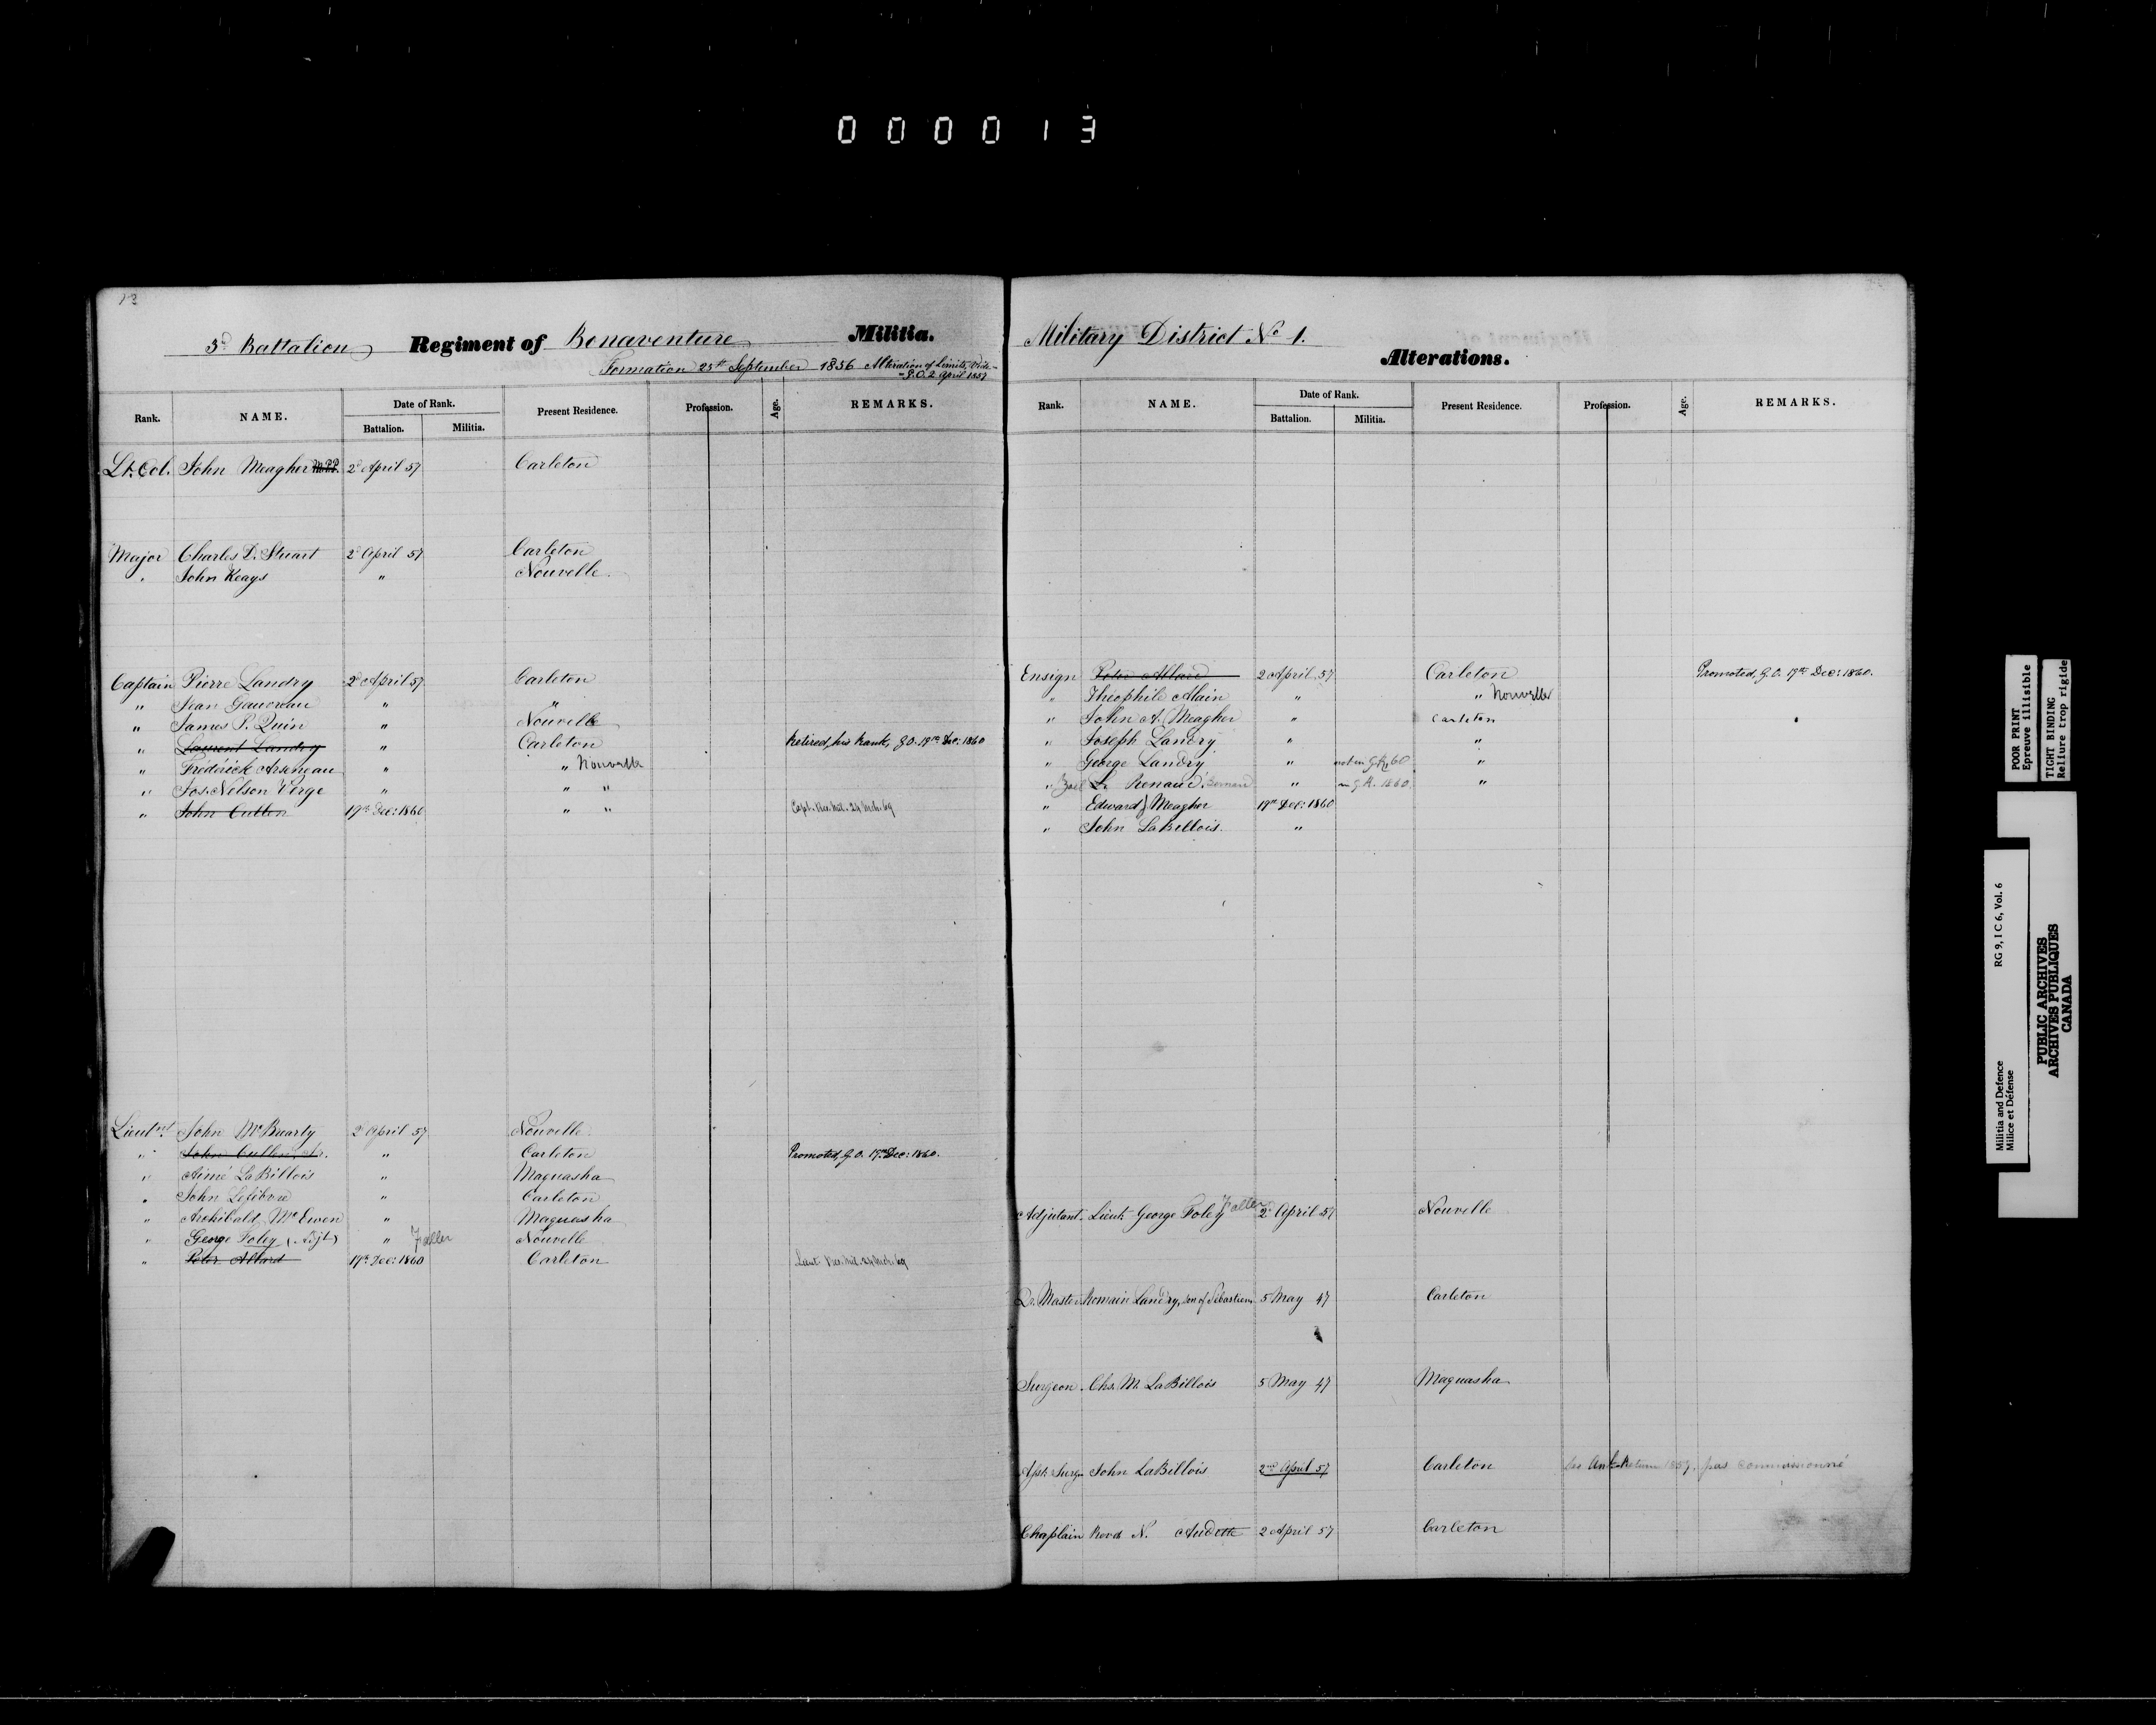 000013
13
3d Battalion Regiment of Bonaventure Militia.
Formation 25th September 1856 Alteration of Limits, Vide
G.O. 2 April 1857
Rank. NAME. Date of Rank. Present Residence. Profession. Age. REMARKS.
Battalion. Militia.
Lt. Col. John Meagher M.P.P. 2d April 57 Carleton
Major Charles D. Stuart 2d April 57 Carleton
" John Keays " Nouvelle
Captain Pierre Landry 2d April 57 Carleton
" Jean Gauvreau " "
" James P. Quin " Nouvelle
" Laurent Landry " Carleton Retired, his Rank, G.O. 19th Dec: 1860
" Frédérick Arseneau " " Nouvelle
" Jos. Nelson Verge " " "
" John Cullen 19th Dec: 1860 " " Capt. Res. Mil. 24 Mch. 69
Lieutnt John McBrearty 2d April 57 Nouvelle
" John Cullen, Jr. " Carleton Promoted, G.O. 19th Dec: 1860.
" Aimé LaBillois " Maguasha
" John Lefebvre " Carleton
" Archibald McEwen " Maguasha
" George Foley (Adjt) " Faller Nouvelle
" Peter Allard 19th Dec: 1860 Carleton Lieut Res. Mil. 24 Mch. 69
Military District No 1.
Alterations.
Rank. NAME. Date of Rank. Present Residence. Profession. Age. REMARKS.
Battalion. Militia.
Ensign Peter Allard 2 April 57 Carleton Promoted, G.O. 19th Dec: 1860.
" Theophile Alain " " Nouvelle
" John A. Meagher " Carleton
" Joseph Landry " "
" George Landry " not in 60 "
" L. Renaud " 1860 "
" Edward J Meagher 19th Dec: 1860
" John LaBillois "
Adjutant. Lieut. George Foley Faller 2d April 57 Nouvelle
Qr. Master Romain Landry, son of Sebastien 5 May 47 Carleton
Surgeon Chs. M. LaBillois 5 May 47 Maguasha
Asst. Surgn John LaBillois 2nd April 57 Carleton Return 1857. pas commissionné
Chaplain Revd N. Audette 2 April 57 Carleton
POOR PRINT
Epreuve illisible
TIGHT BINDING
Reliure trop rigide
Militia and Defence RG 9, I C 6, Vol. 6
Milice et Défense
PUBLIC ARCHIVES
ARCHIVES PUBLIQUES
CANADA